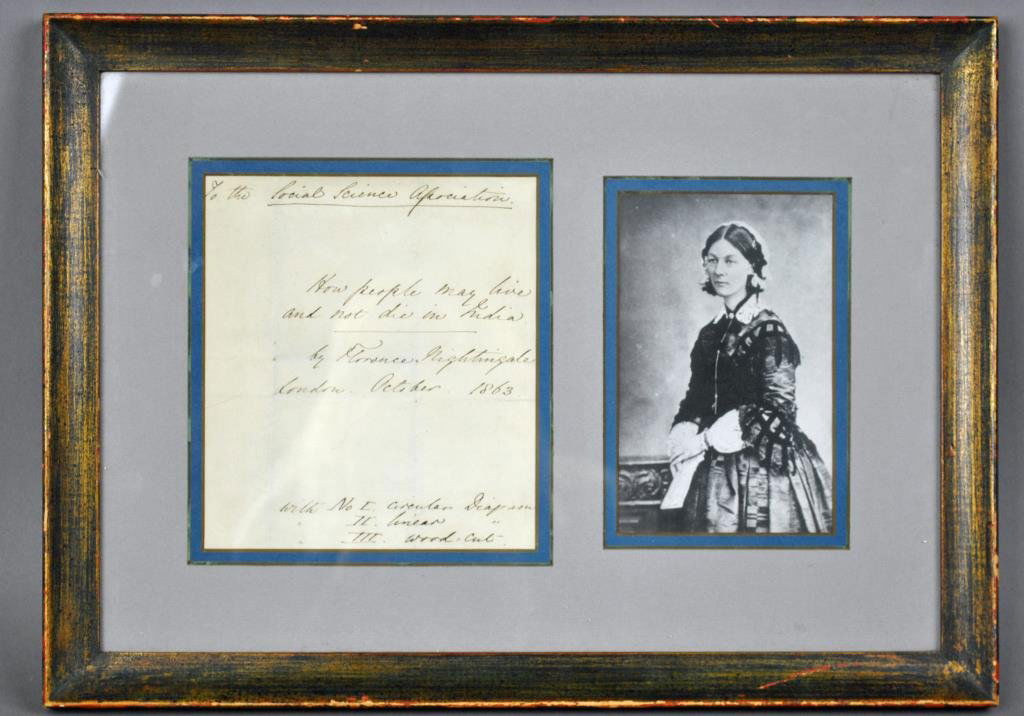 To the Social Science Association.
How people may live
and not die in India
by Florence Nightingale
London. October 1863
with No I. circular Diagram
II. linear "
III. wood-cut.